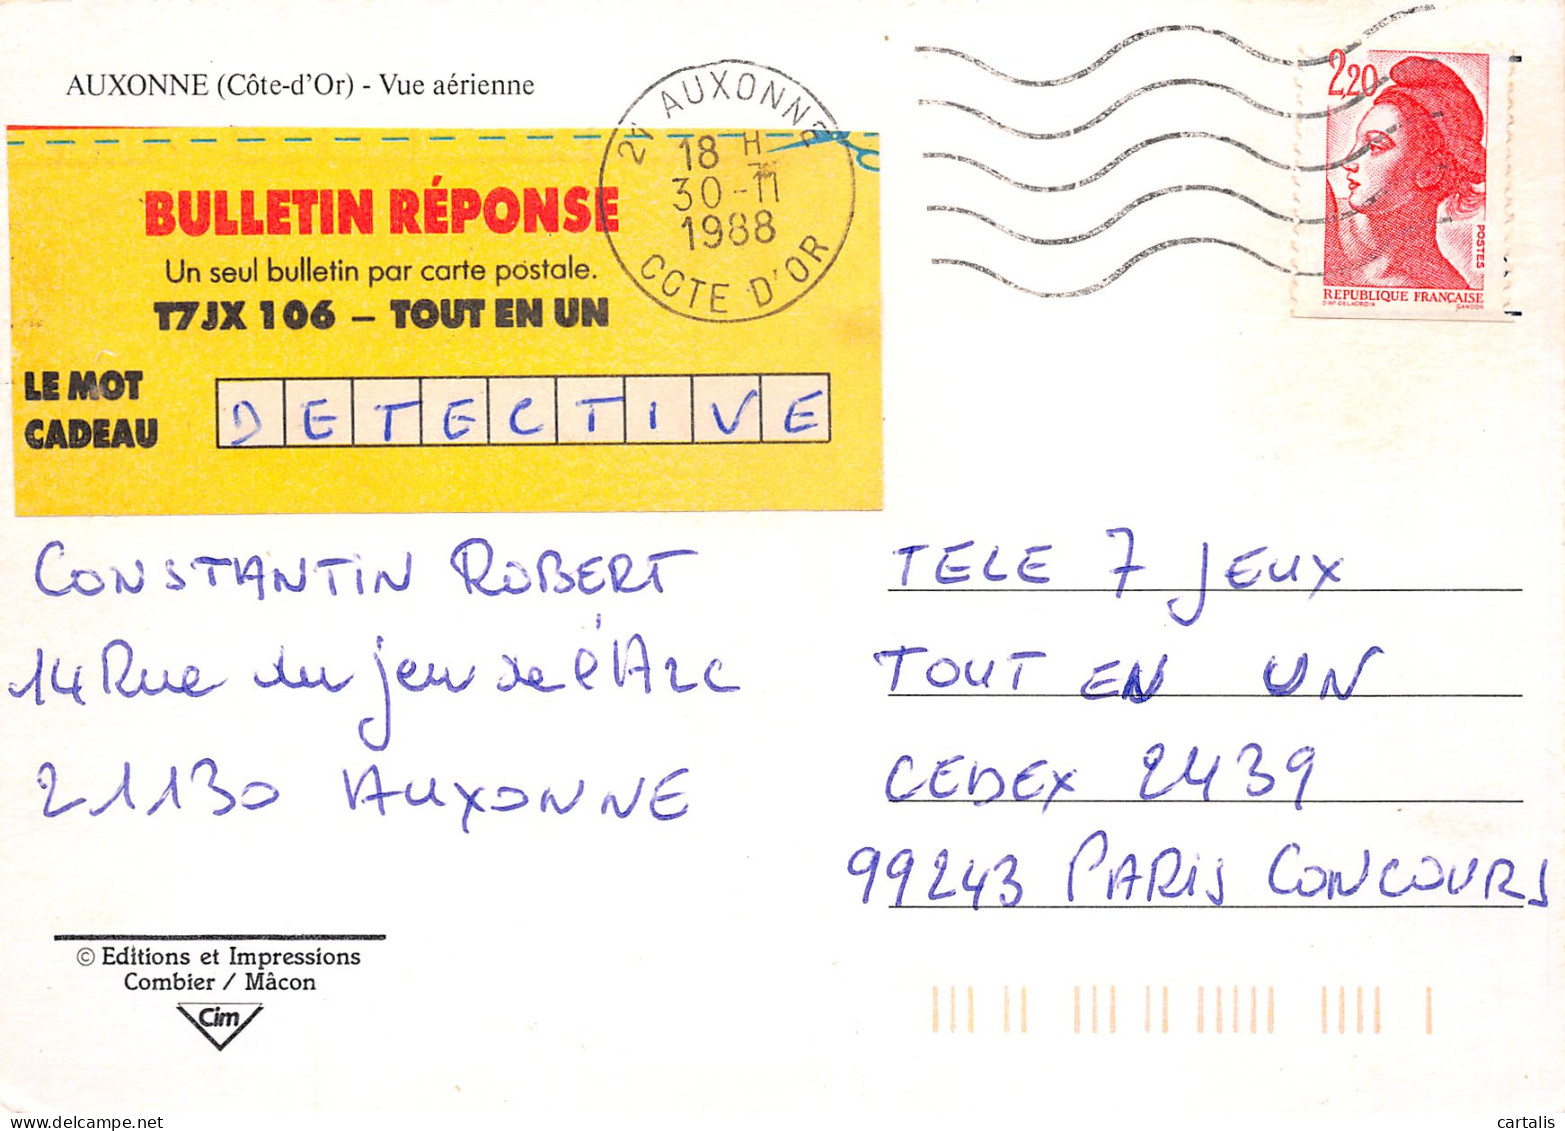 AUXONNE (Côte-d'Or) - Vue aérienne
BULLETIN RÉPONSE
Un seul bulletin par carte postale.
T7JX 106 – TOUT EN UN
LE MOT
CADEAU
DETECTIVE
21 AUXONNE
18 H
30-11
1988
COTE D'OR
2,20
POSTES
REPUBLIQUE FRANÇAISE
D'AP. DELACROIX
GANDON
CONSTANTIN ROBERT
14 Rue du jeu de l'Arc
21130 AUXONNE
TELE 7 JEUX
TOUT EN UN
CEDEX 2439
99243 PARIS CONCOURS
© Editions et Impressions
Combier / Mâcon
Cim
cartalis